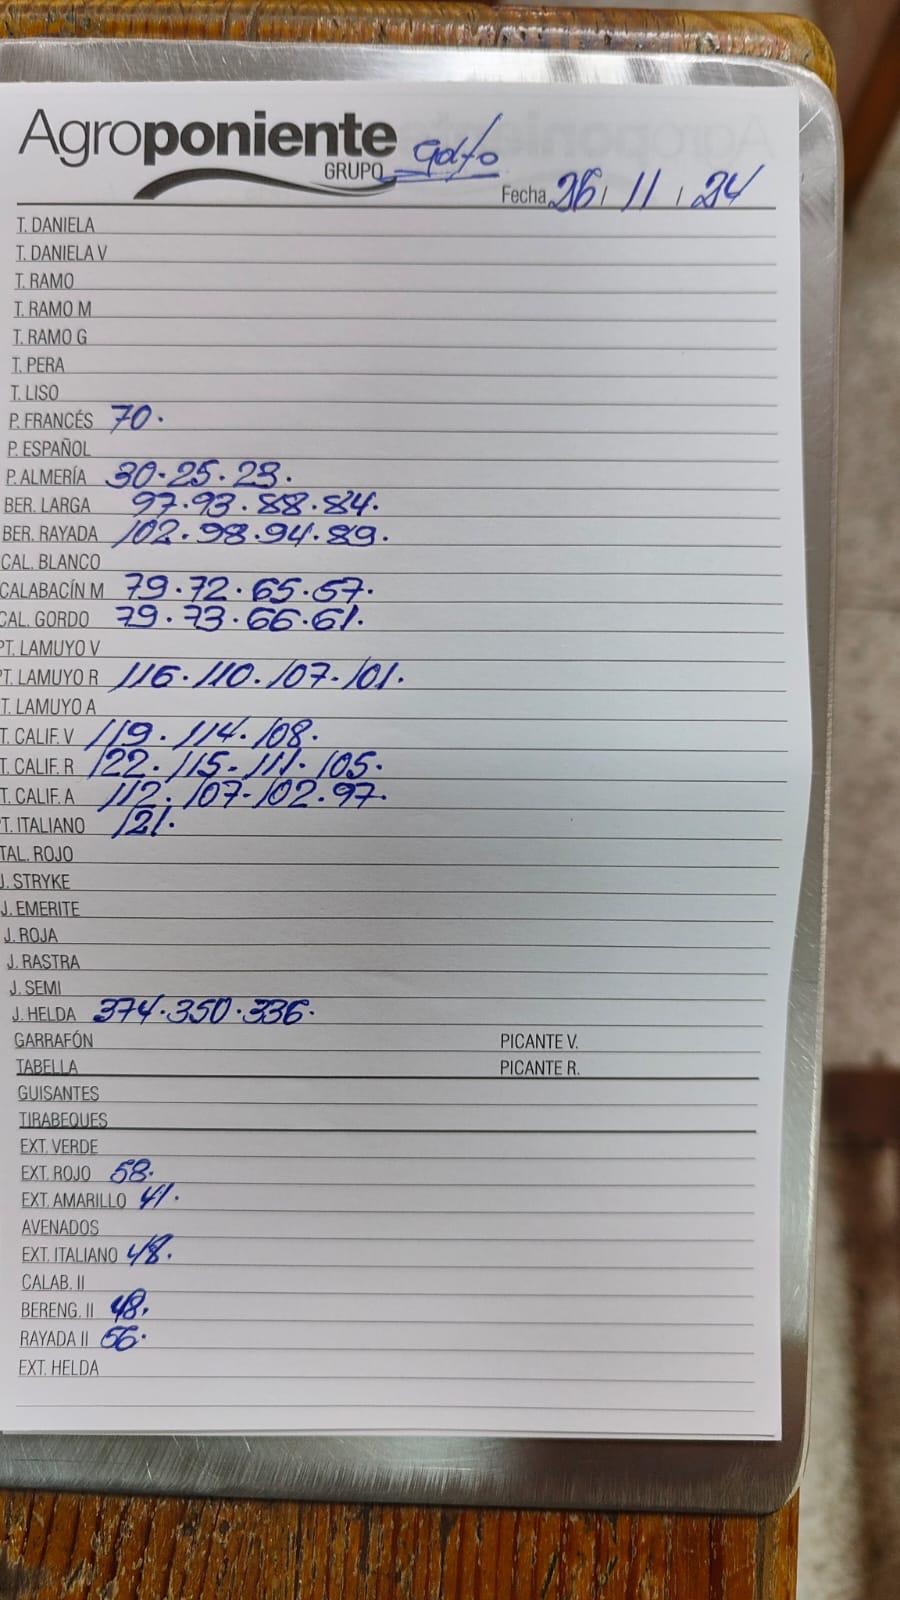 Agroponiente
GRUPO
Fecha 26 / 11 / 24
T. DANIELA
T. DANIELA V
T. RAMO
T. RAMO M
T. RAMO G
T. PERA
T. LISO
P. FRANCÉS 70.
P. ESPAÑOL
P. ALMERÍA 30.25.23.
BER. LARGA 97.93.88.84.
BER. RAYADA 102.98.94.89.
CAL. BLANCO
CALABACÍN M 79.72.65.57.
CAL. GORDO 79.73.66.61.
PT. LAMUYO V
PT. LAMUYO R 116.110.107.101.
T. LAMUYO A
T. CALIF. V 119.114.108.
T. CALIF. R 122.115.111.105.
T. CALIF. A 112.107.102.97.
PT. ITALIANO 121.
TAL. ROJO
J. STRYKE
J. EMERITE
J. ROJA
J. RASTRA
J. SEMI
J. HELDA 374.350.336.
GARRAFÓN PICANTE V.
TABELLA PICANTE R.
GUISANTES
TIRABEQUES
EXT. VERDE
EXT. ROJO 58.
EXT. AMARILLO 41.
AVENADOS
EXT. ITALIANO 48.
CALAB. II
BERENG. II 48.
RAYADA II 56.
EXT. HELDA